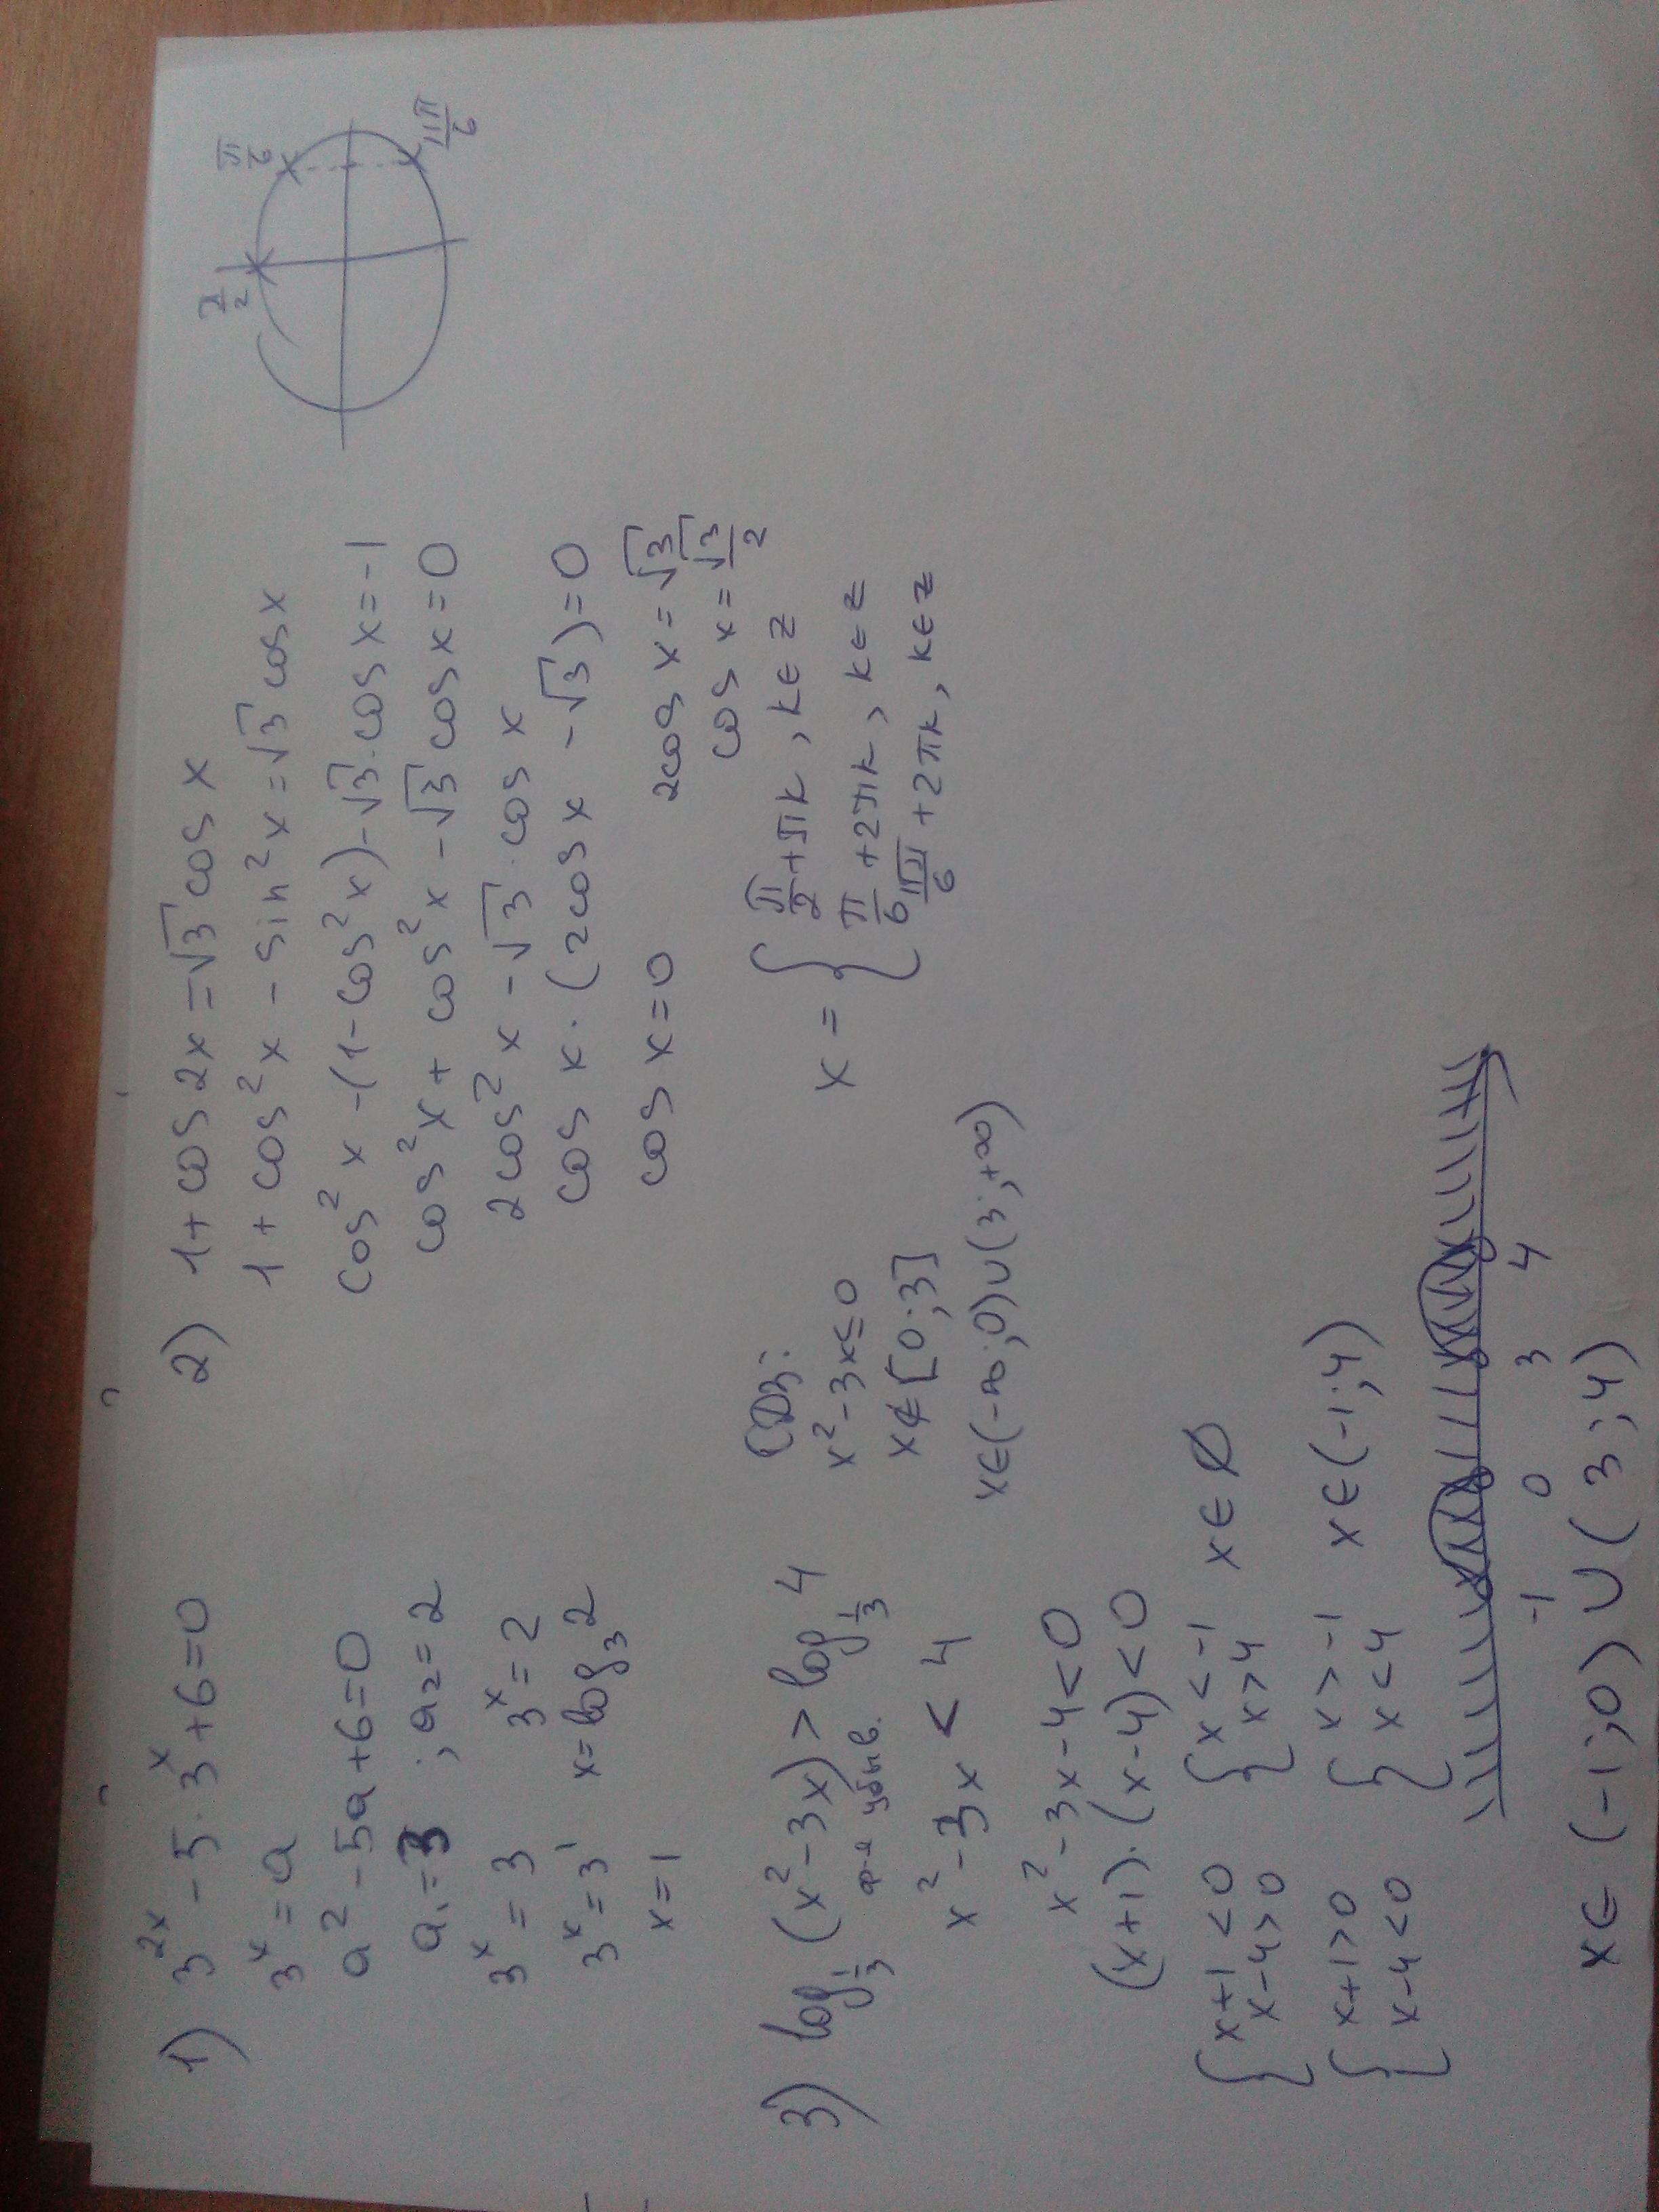 1) 3^2x - 5 · 3^x + 6 = 0
3^x = a
a² - 5a + 6 = 0
a₁ = 3 ; a₂ = 2
3^x = 3 3^x = 2
3^x = 3¹ x = log₃2
x = 1
2) 1 + cos 2x = √3 cos x
1 + cos²x - sin²x = √3 cos x
cos²x - (1 - cos²x) - √3 · cos x = -1
cos²x + cos²x - √3 cos x = 0
2cos²x - √3 · cos x
cos x · (2cos x - √3) = 0
cos x = 0 2cos x = √3
cos x = √3/2
x = { π/2 + πk, k ∈ z
π/6 + 2πk, k ∈ z
11π/6 + 2πk, k ∈ z
π/2
π/6
11π/6
3) log_1/3 (x² - 3x) > log_1/3 4
ф-я убыв.
x² - 3x < 4
x² - 3x - 4 < 0
(x+1) · (x-4) < 0
{ x+1 < 0 { x < -1 x ∈ ∅
x-4 > 0 x > 4
{ x+1 > 0 { x > -1 x ∈ (-1; 4)
x-4 < 0 x < 4
ОДЗ:
x² - 3x ≤ 0
x ∉ [0; 3]
x ∈ (-∞; 0) ∪ (3; +∞)
-1 0 3 4
x ∈ (-1; 0) ∪ (3; 4)